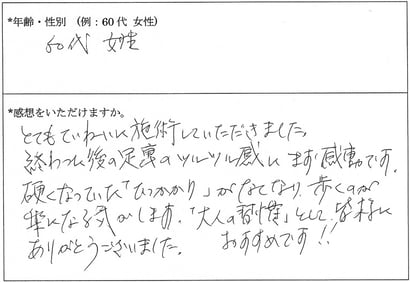 *年齢・性別 (例:60代 女性)
60代 女性
*感想をいただけますか。
とてもていねいに施術していただきました。
終わった後の足裏のツルツル感に まず感動です。
硬くなっていた「ひっかかり」がなくなり、歩くのが
楽になる気がします。「大人の習慣」として、皆様に
ありがとうございました。 おすすめです!!